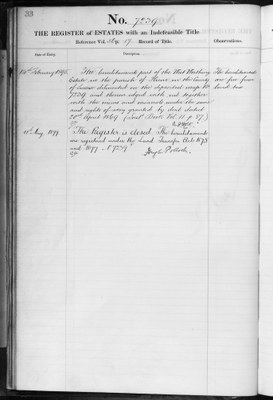 33
No. 7529
THE REGISTER of ESTATES with an Indefeasible Title
Reference Vol. 17 Record of Title.
Date of Entry.
Description.
Observations.
February 1895
The hereditaments part of the West Worthing
Estate in the parish of in the County
of Sussex delineated in the deposited map No.
7529 and thereon edged with red together
with the mines and minerals under the same
and rights of way granted by deed dated
20th April 1864
The hereditaments
are free from
land tax
11th Aug 1899
The Register is closed. The hereditaments
are registered under the Land Transfer Acts 1875
and 1897